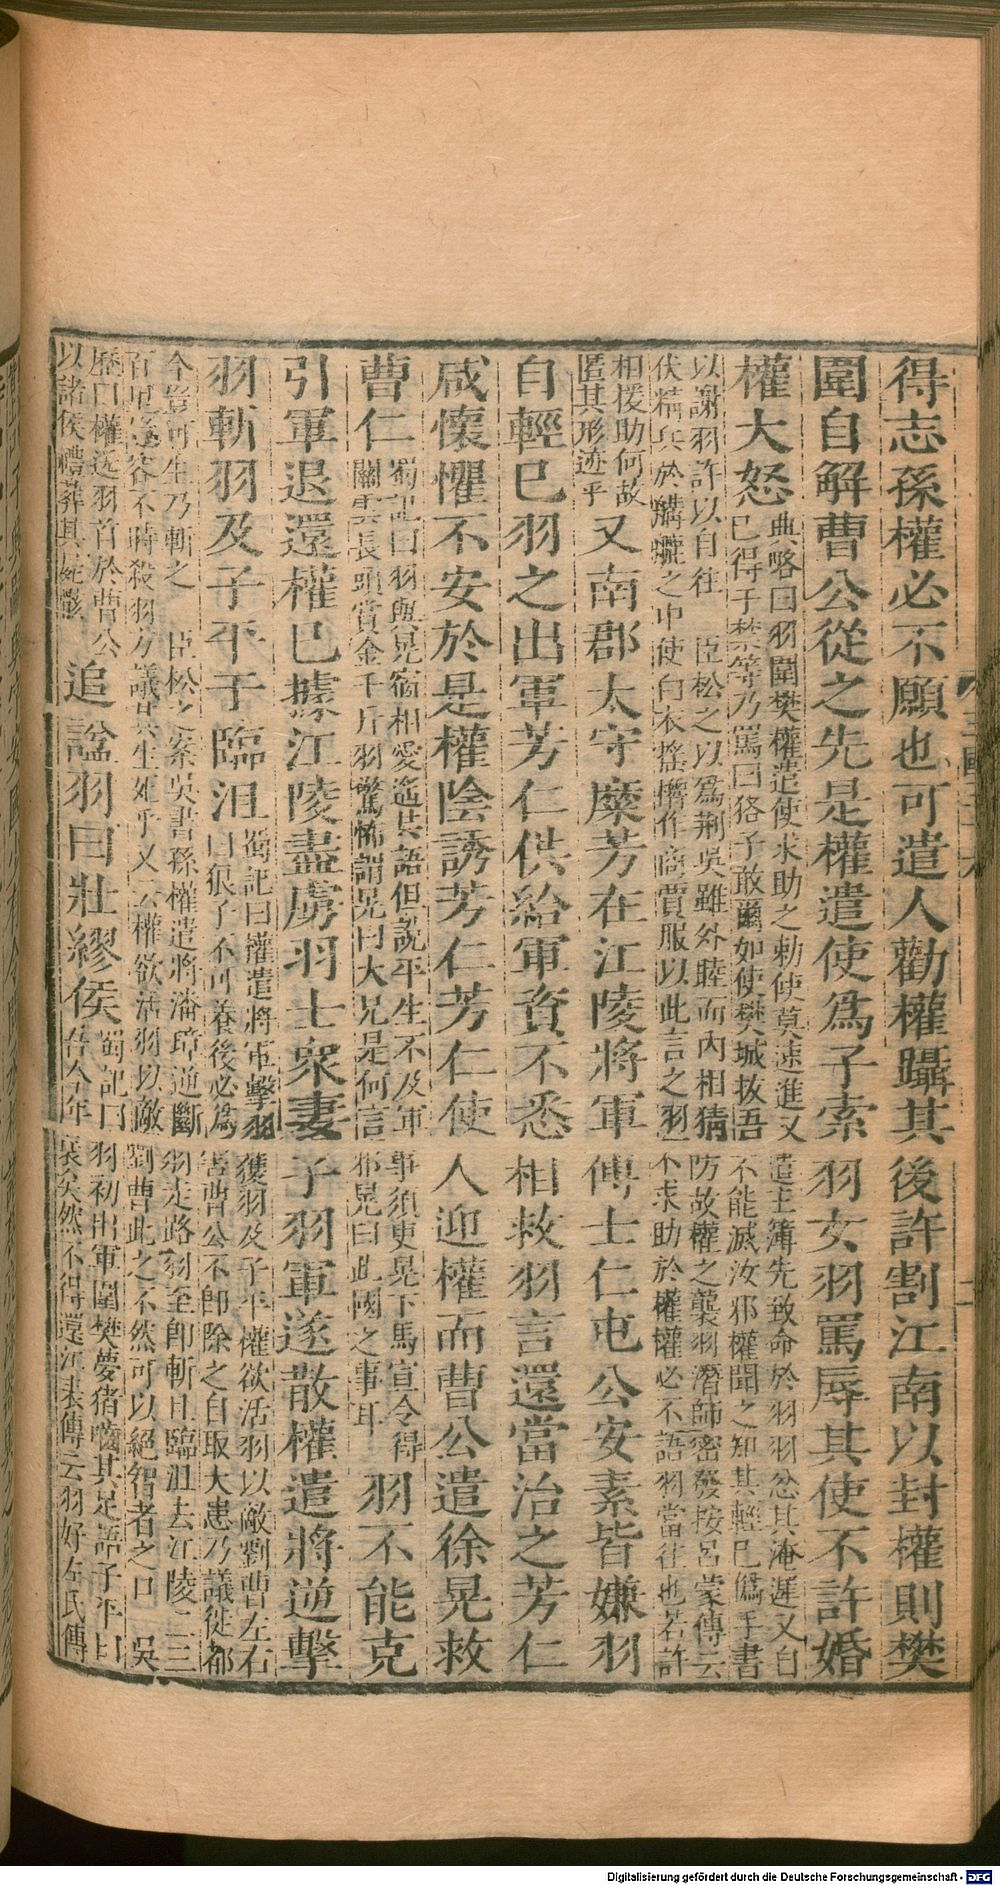 得志孫權必不願也可遣人勸權躡其後許割江南以封權則樊
圍自解曹公從之先是權遣使爲子索羽女羽罵辱其使不許婚
權大怒
典略曰羽圍樊權遣使求助之勑使莫速進又遣主簿先致命於羽羽忿其淹遲又自
已得于禁等乃罵曰狢子敢爾如使樊城拔吾不能滅汝邪權聞之知其輕已僞手書
以謝羽許以自往 臣松之以爲荆吳雖外睦而內相猜防故權之襲羽潛師密發按呂蒙傳云
伏精兵於𦩷𦪇之中使白衣搖櫓作商賈服以此言之羽不求助於權權必不語羽當往也若許
相援助何故
匿其形迹乎
又南郡太守麋芳在江陵將軍傅士仁屯公安素皆嫌羽
自輕已羽之出軍芳仁供給軍資不悉相救羽言還當治之芳仁
咸懷懼不安於是權陰誘芳仁芳仁使人迎權而曹公遣徐晃救
曹仁
蜀記曰羽與晃宿相愛遙共語但說平生不及軍事須臾晃下馬宣令得
關雲長頭賞金千斤羽驚怖謂晃曰大兄是何言邪晃曰此國之事耳
羽不能克
引軍退還權已據江陵盡虜羽士衆妻子羽軍遂散權遣將逆擊
羽斬羽及子平于臨沮
蜀記曰權遣將軍擊羽獲羽及子平權欲活羽以敵劉曹左右
曰狼子不可養後必爲害曹公不即除之自取大患乃議徙都
今豈可生乃斬之 臣松之案吳書孫權遣將潘璋逆斷羽走路羽至即斬且臨沮去江陵二三
百里豈容不時殺羽方議其生死乎又云權欲活羽以敵劉曹此之不然可以絕智者之口 吳
歷曰權送羽首於曹公
以諸侯禮葬其屍骸
追諡羽曰壯繆侯
蜀記曰羽初出軍圍樊夢猪嚙其足語子平曰
吾今年衰矣然不得還江表傳云羽好左氏傳
Digitalisierung gefördert durch die Deutsche Forschungsgemeinschaft - DFG